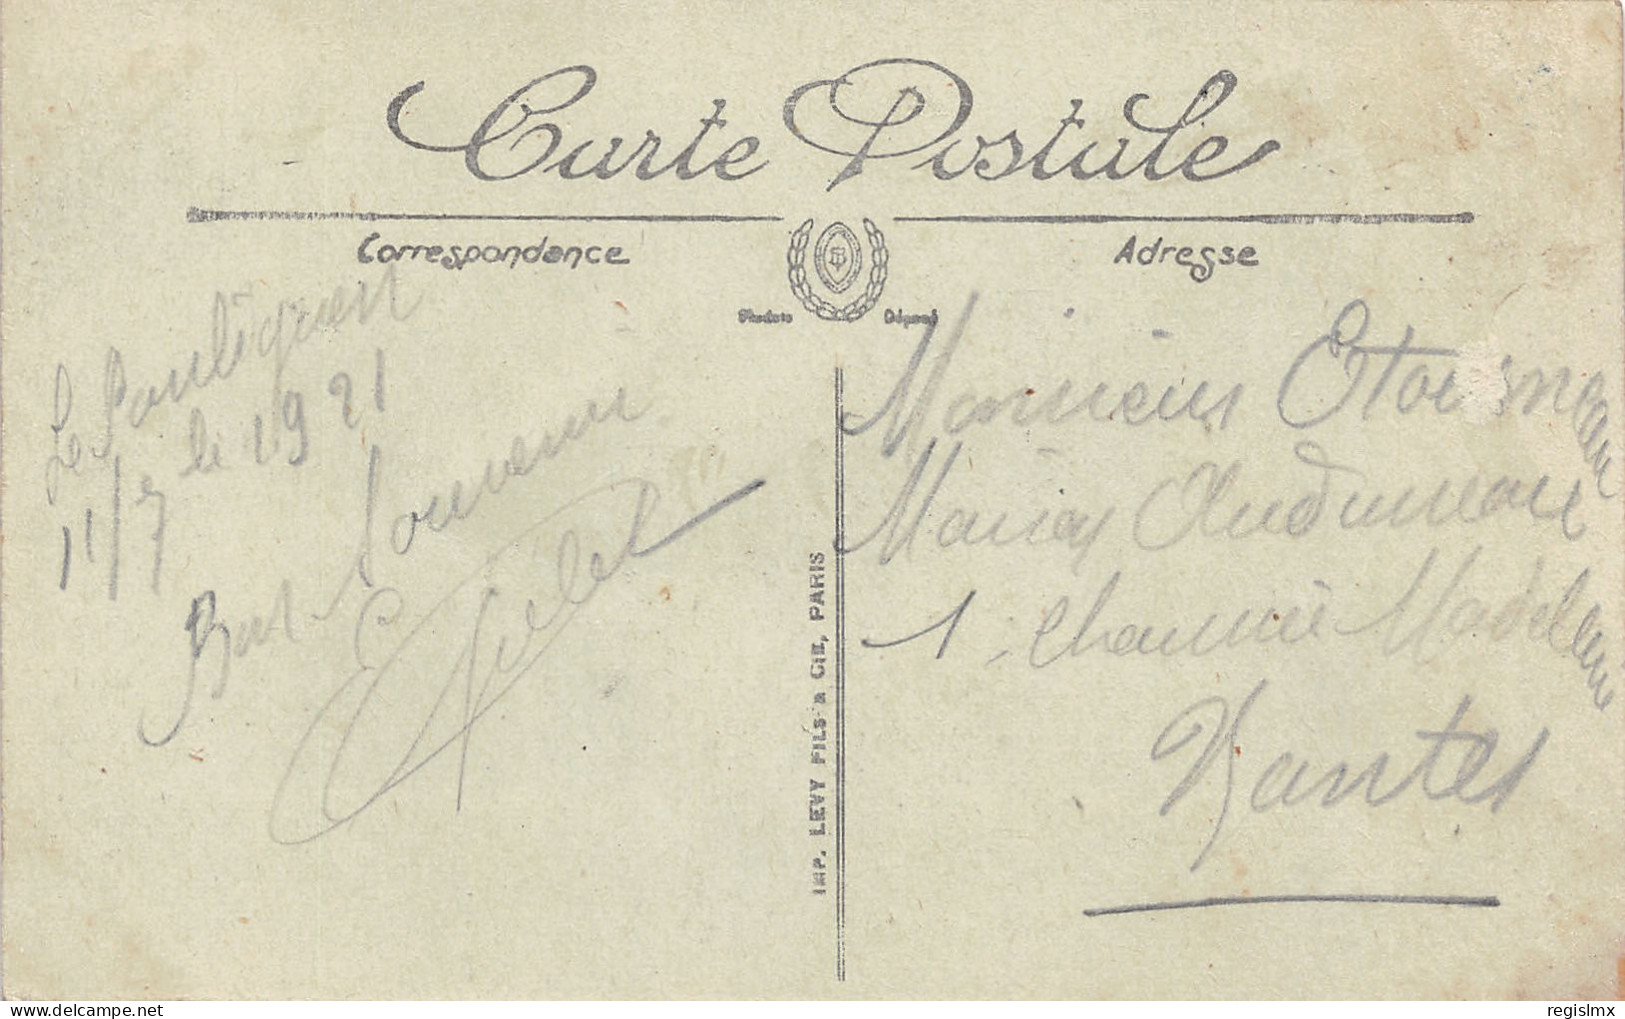 Carte Postale
Correspondance
Adresse
Modèle Déposé
Le Pouliguen
11/7 le 1921
Bon Souvenir
Monsieur Etourneau
Maison Audureau
1 Chaussée Madeleine
Nantes
IMP. LEVY FILS & CIE, PARIS
delcampe.net
regislmx